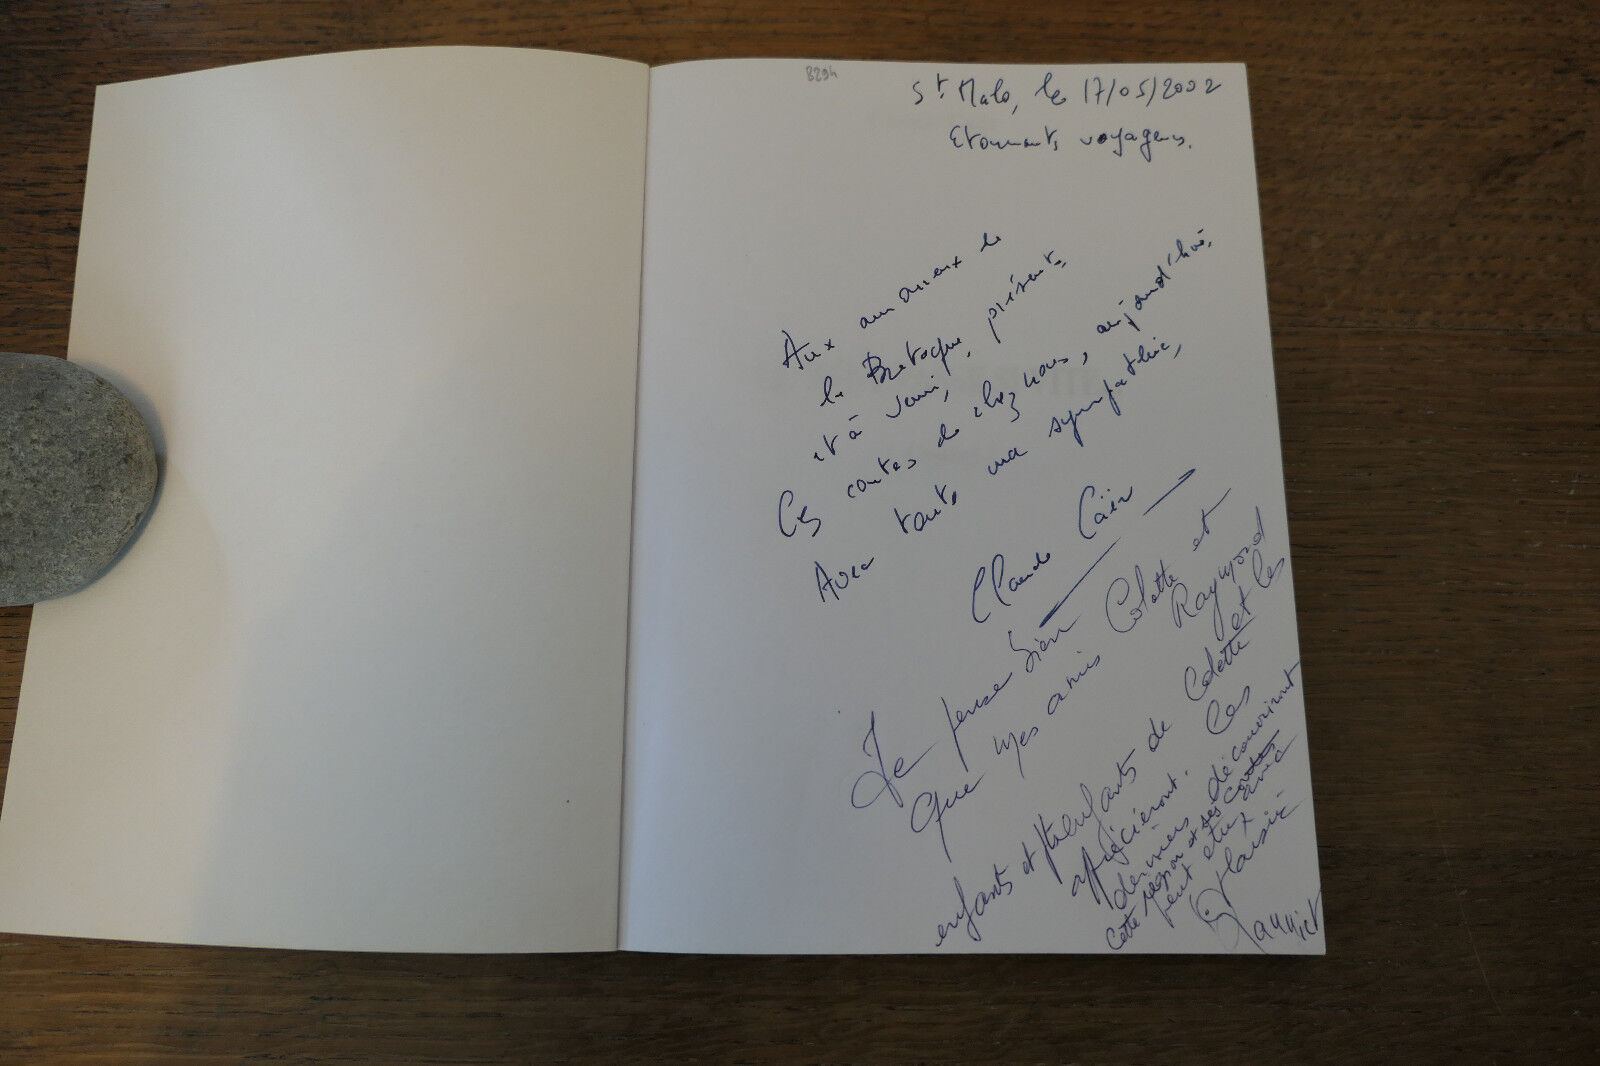 8294
St Malo, le 17/05/2002
Etonnants voyageurs.
Aux amoureux de
la Bretagne, présents
et à venir,
Ces contes de chez nous, aujourd'hui,
Avec toute ma sympathie,
Claude
Je pense bien
que mes amis Colette et Raymond
enfants et petits enfants de Colette et les
apprécieront. Ces
derniers découvriront
cette région et ses contes
peut être avec
plaisir